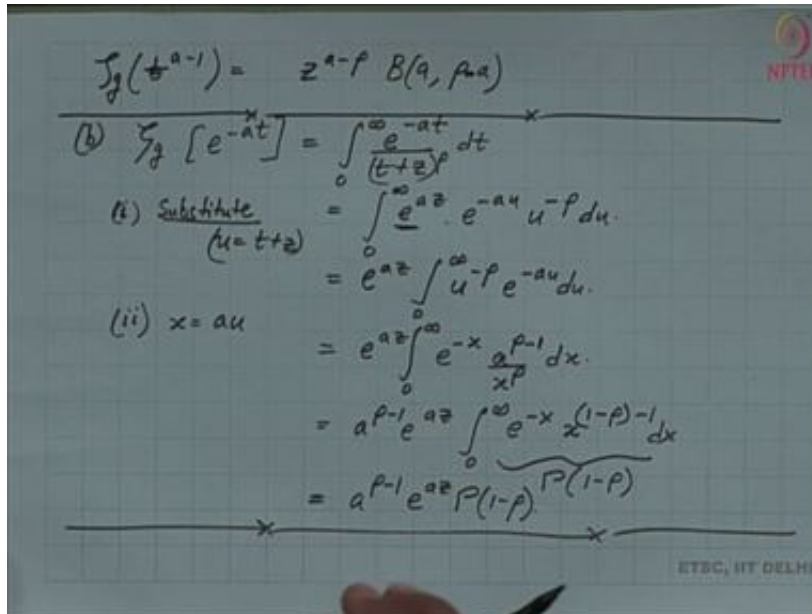 ζg(t^{a-1}) = z^{a-ρ} B(a, ρ-a)
NPTEL
(b) ζg [e^{-at}] = ∫_0^∞ e^{-at}/(t+z)^ρ dt
(i) Substitute = ∫_0^∞ e^{az} . e^{-au} u^{-ρ} du.
(u = t+z)
= e^{az} ∫_0^∞ u^{-ρ} e^{-au} du.
(ii) x = au
= e^{az} ∫_0^∞ e^{-x} a^{ρ-1}/x^ρ dx.
= a^{ρ-1} e^{az} ∫_0^∞ e^{-x} x^{(1-ρ)-1} dx
Γ(1-ρ)
= a^{ρ-1} e^{az} Γ(1-ρ)
ETSC, IIT DELHI